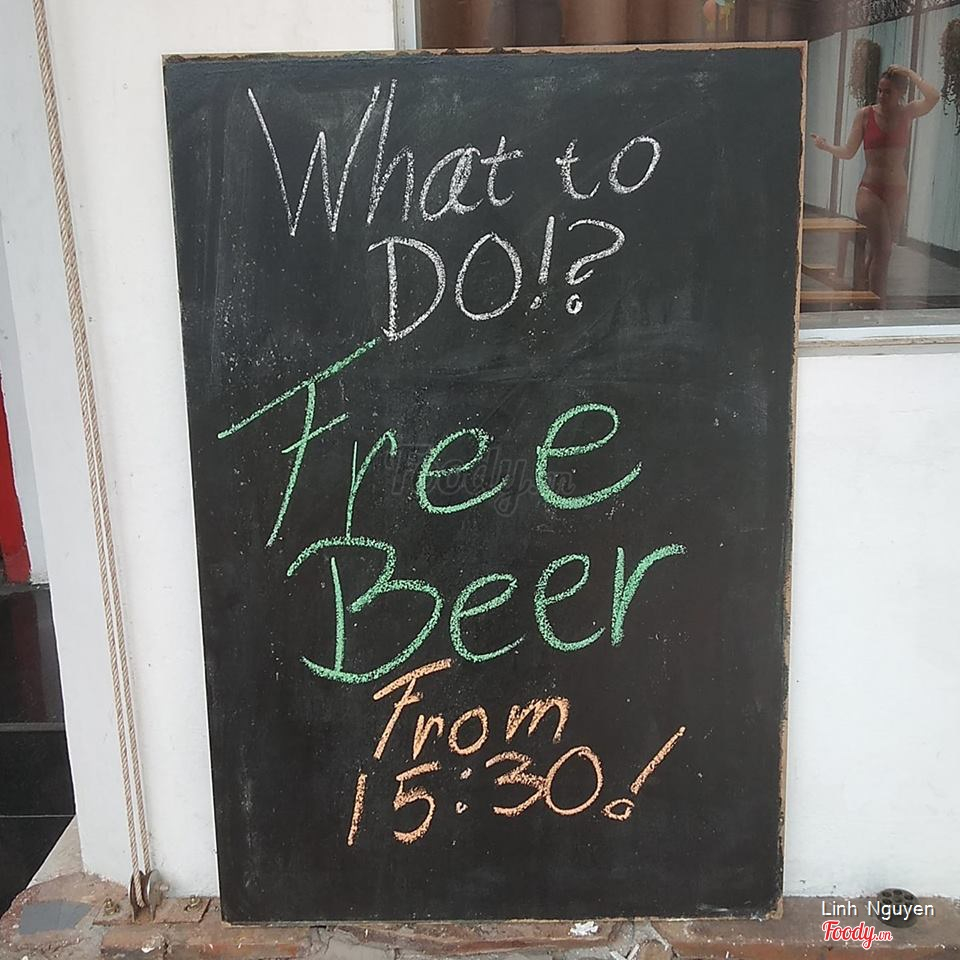 What to
DO!?
Free
Beer
From
15:30!
Foody.vn
Linh Nguyen
Foody.vn